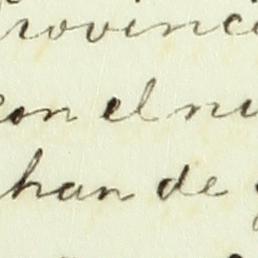 provinc
con el nu
han de